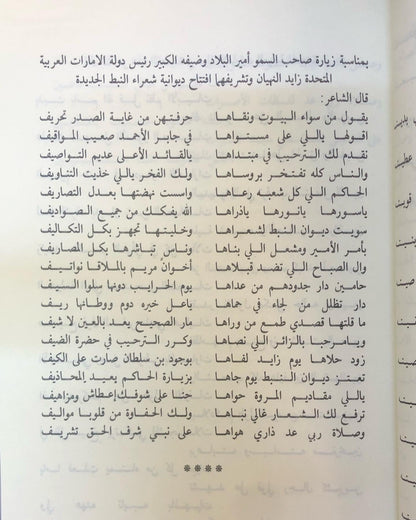 بمناسبة زيارة صاحب السمو أمير البلاد وضيفه الكبير رئيس دولة الامارات العربية
المتحدة زايد النهيان وتشريفهما افتتاح ديوانية شعراء النبط الجديدة
قال الشاعر:
يقول من سواء البيوت ونقاها حرفتهن من غاية الصدر تحريف
اقولها ياللي على مستواها في جابر الأحمد صعيب المواقيف
نقدم لك الترحيب في مبتداها يالقائد الأعلى عديم التواصيف
والناس كله تفتخر بروساها ولك الفخر ياللي خذيت التناويف
الحاكم اللي كل شعبه رعاها واسست نهضتها بعدل التصاريف
ياسورها ياتورها ياذراها الله يفكك من جميع الصواديف
سويت ديوان النبط لشعراها وخليتها تجهز بكل التكاليف
بأمر الأمير ومشعل اللي بناها وناس تباشرها بكل المصاريف
وال الصباح اللي تضد قبلاها أخوان مريم بالملاقا نواتيف
حامين دار جدودهم من عداها يوم الحرايب دونها سلوا السيف
دار تظلل من لجاء في حماها باعل خيره دوم ووطانها ريف
ما قلتها قصدي طمع من وراها مار الصحيح يعد بالعين لا شيف
ويامرحبا بالزائر اللي نصاها وكرر الترحيب في حضرة الضيف
زود حلاها يوم زايد لفاها بوجود بن سلطان صارت على الكيف
تعتز ديوان النبط يوم جاها بزيارة الحاكم بعيد المحاذيف
ياللي مقاديم المروة حواها حنا على شوفك إعطاش ومزاهيف
ترفع لك الشعار غالي نباها ولك الحفاوة من قلوبا مواليف
وصلاة ربي عد ذاري هواها على نبي شرف الحق تشريف
****